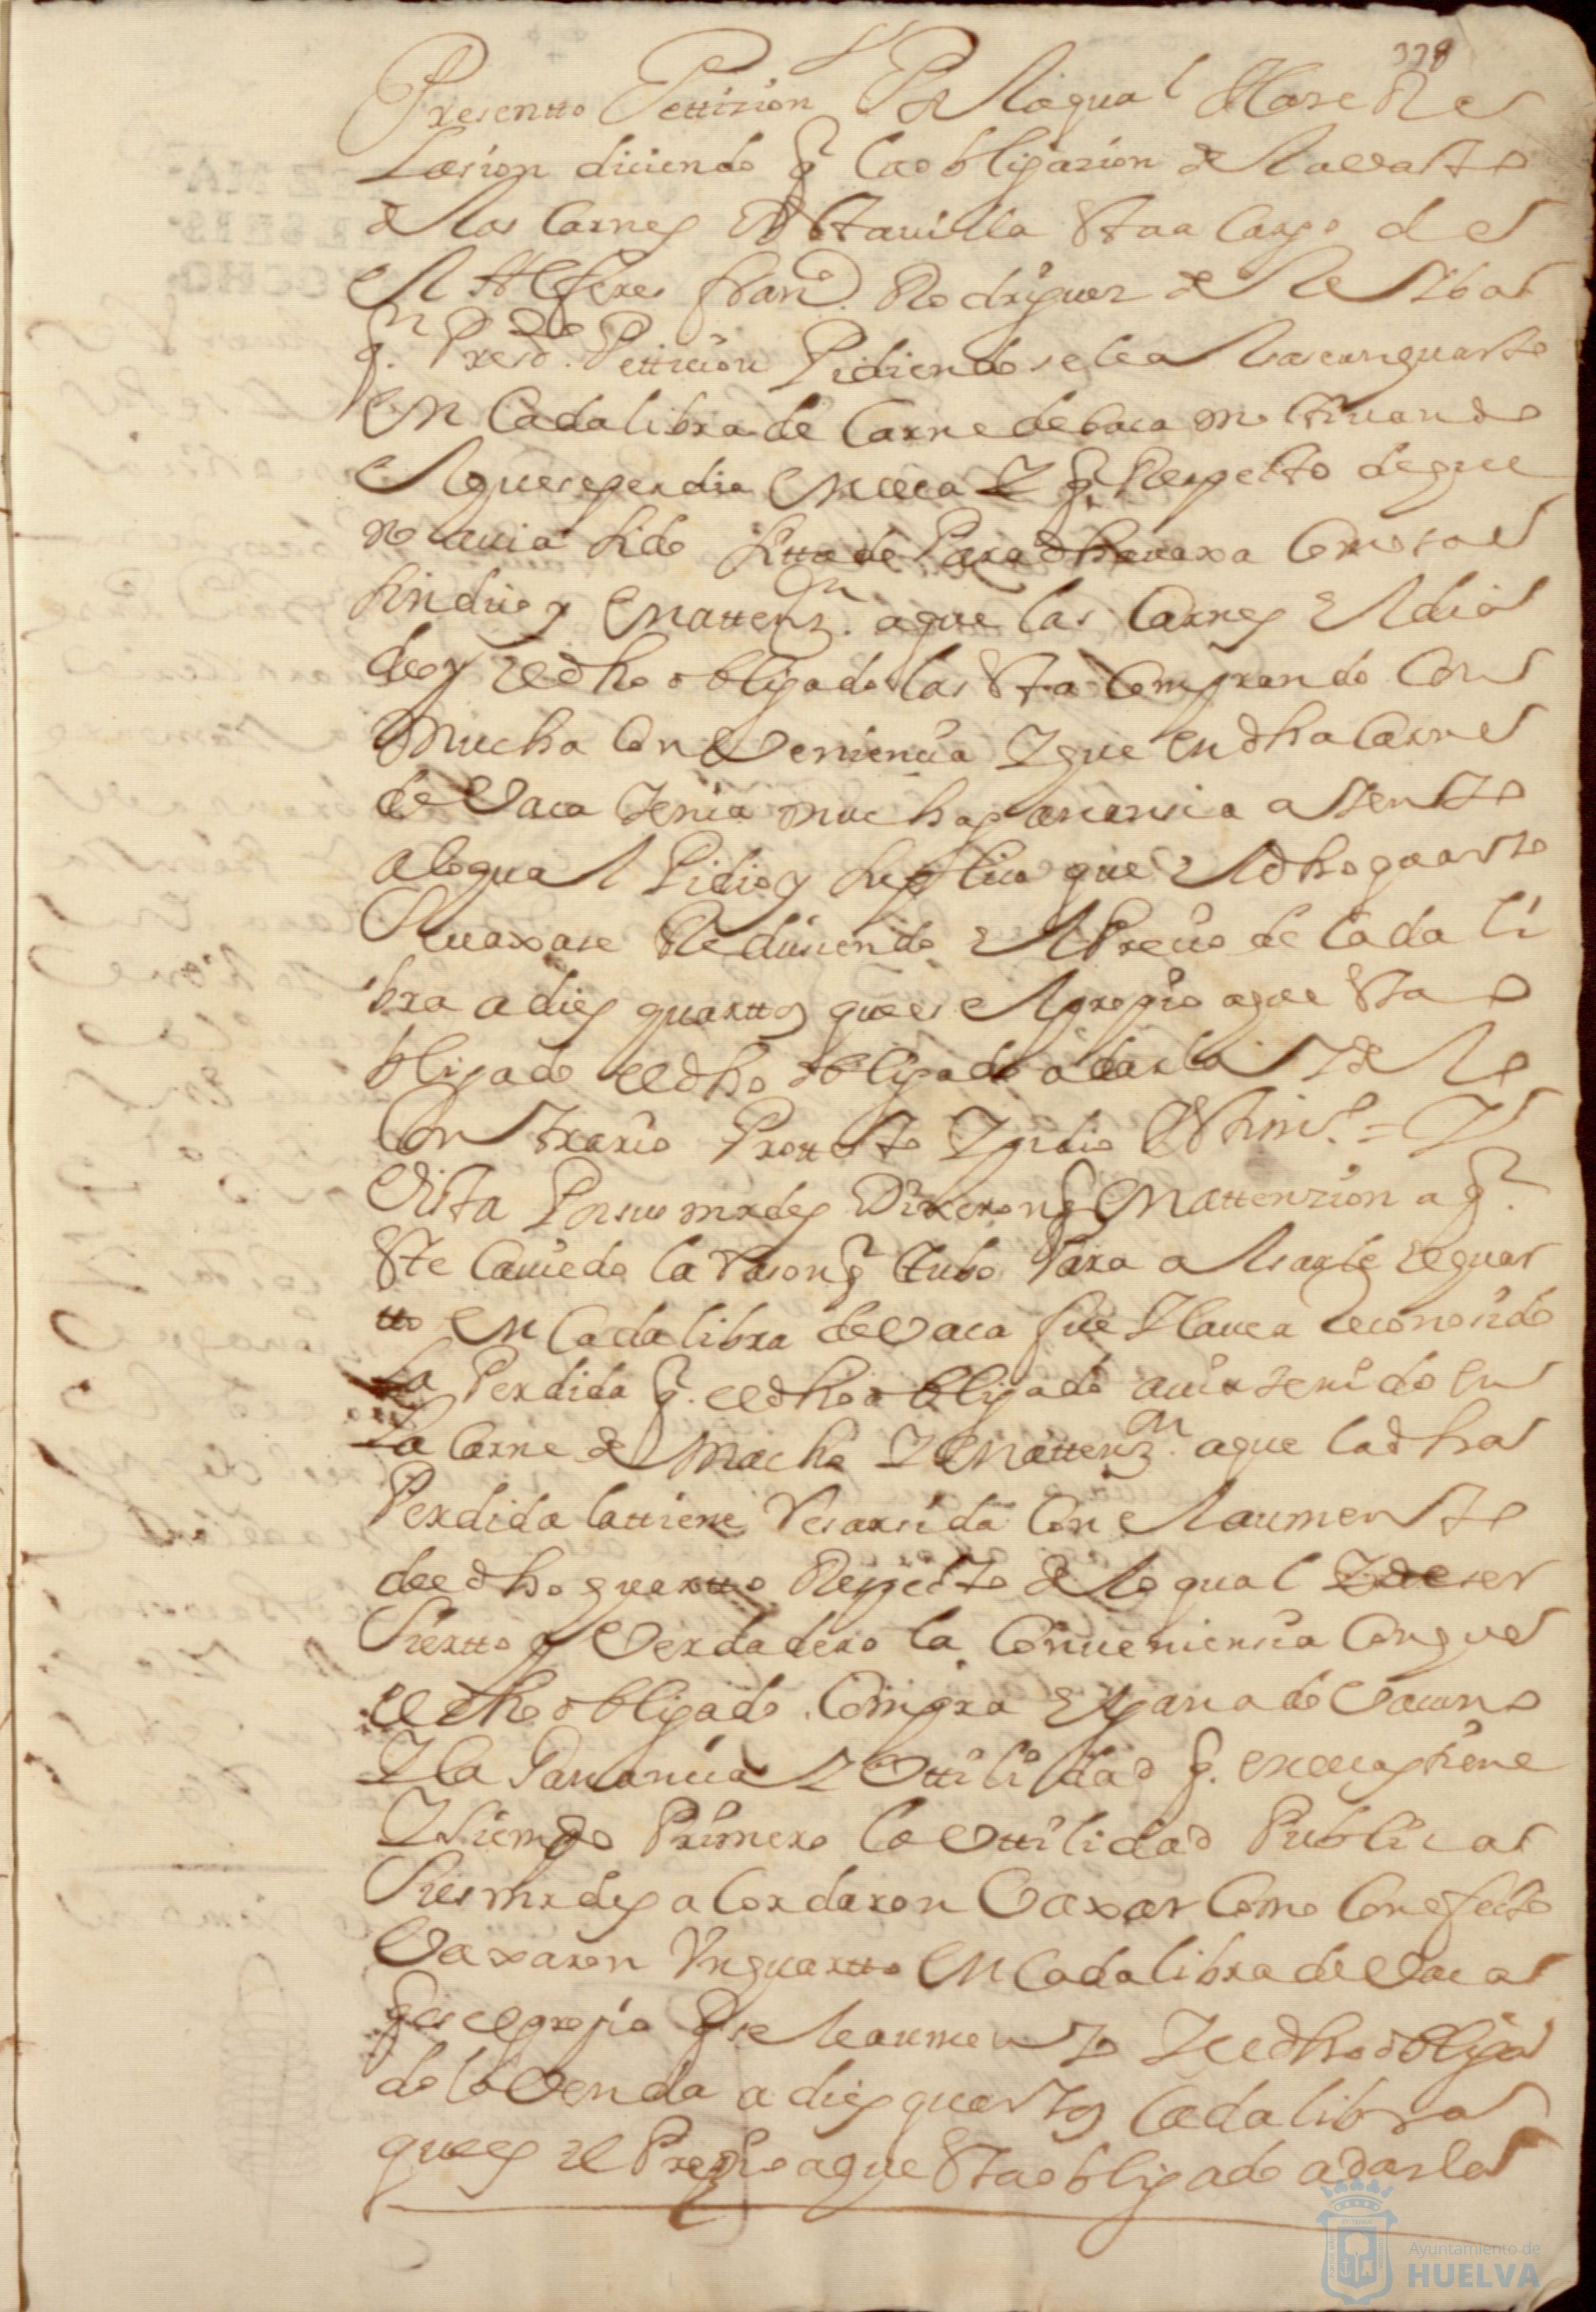 328
Presentto Pettision Por la qual Hase Re
lasion diciendo q la obligazion de el avasto
de las Carnes de esta villa esta a Cargo del
el Alferes Fran.co Rodriguez de
q.n Pres.do Petticion Pidiendo se le alsase un quarto
en Cada libra de Carne de baca motivando
el que se perdia en ella y q. Respecto de que
no avia sido para d.ha vaxa como sa el
Sindico y en attenz.n a que las Carnes el dia
de oy el dho obligado las esta Comprando Con
mucha Conveniencia y que en dha Carne
de Vaca tenia mucha ganansia atento
a lo qual Pidio y suplico que el dho quarto
se vaxase Redusiendo el Precio de Cada li
bra a dies quarttos que es el propio a que esta o
bligado el dho obligado a darla y de lo
Contrario Protesto y pidio testim.o = Y
Vista Por sus mrdes Dixeron q en attenzion a q.
este Cavildo la rason q tubo Para alsarle el quar
tto en Cada libra de vaca fue el aver reconosido
la Perdida q. el dho obligado avia tenido en
la Carne de Macho y en attenz.n a que la dha
Perdida la ttiene resarsida Con el aumento
de el dho quartto Respecto de lo qual y de ser
sierto y Verdadero la Conveniensia Con que
el dho obligado Compra el ganado Vacuno
y la Ganancia y Uttilidad q. en ella tiene
y siendo Primero la Uttilidad Publica
Sus mrdes acordaron Vaxar Como Con efecto
Vaxaron un quartto en Cada libra de Vaca
q es el propio q se le aumento y el dho obliga
do la Venda a dies quartos Cada libra
que es el Presio a que esta obligado a darla
Ayuntamiento de
HUELVA